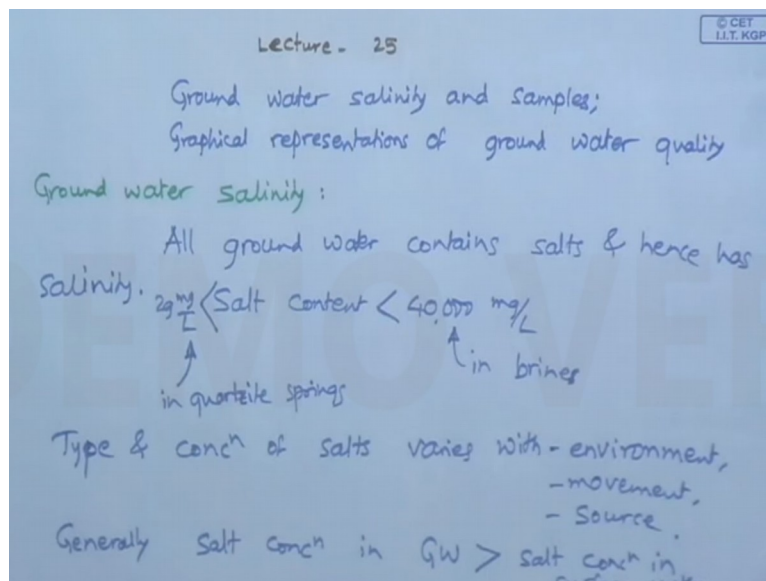 © CET
I.I.T. KGP
Lecture - 25
Ground water salinity and samples;
Graphical representations of ground water quality
Ground water salinity:
All ground water contains salts & hence has
salinity.
mg/L < Salt content < 40,000 mg/L
in quartzite springs
in brines
Type & concⁿ of salts varies with - environment,
- movement,
- source.
Generally salt concⁿ in GW > salt concⁿ in